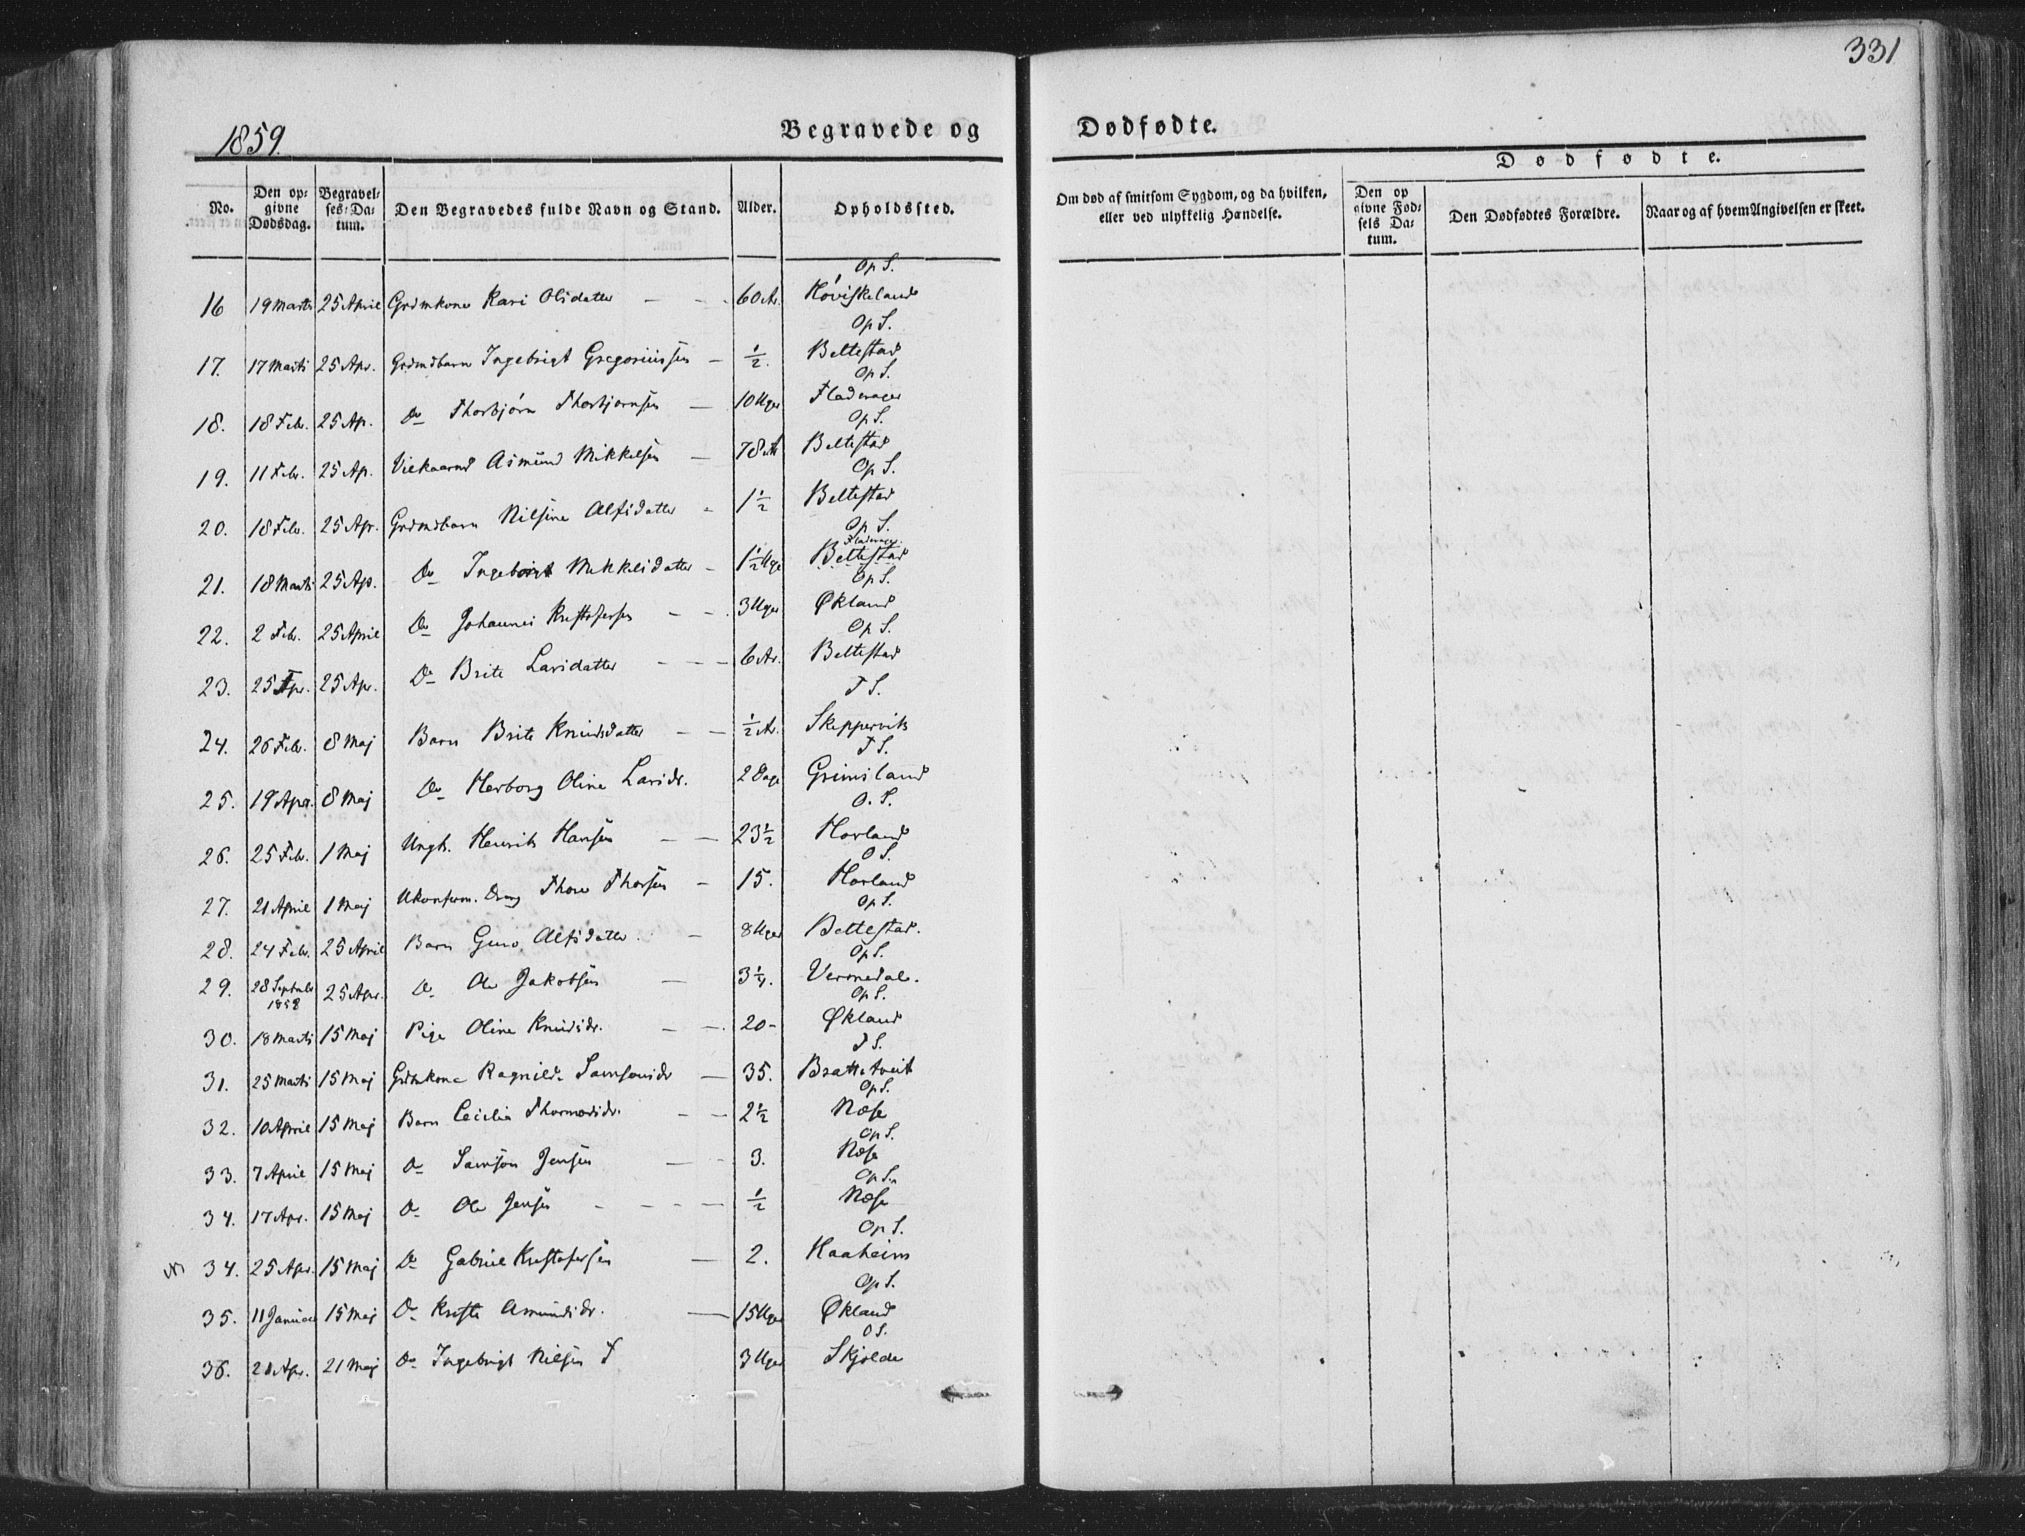 331
1859.
Begravede og
Dødfødte.
No.
Den op-
givne
Dødsdag.
Begravel-
ses-Da-
tum.
Den Begravedes fulde Navn og Stand.
Alder.
Opholdssted.
Om død af smitsom Sygdom, og da hvilken,
eller ved ulykkelig Hændelse.
Dødfødte.
Den op
givne Fød-
sels Da-
tum.
Den Dødfødtes Forældre.
Naar og af hvem Angivelsen er skeet.
16 19 Marts 25 April Grdmkone Kari Olsdatter 60 Ar. Op S. Høviskeland
17. 17 Marts 25 Apr. Grdmdbarn Ingebrigt Gregoriussen ½. Op S. Beltestad
18. 18 Febr. 25 Ap. Do Thorbjørn Thorbjørnsen 10 Uger Op S. Fladerager
19. 11 Febr. 25 Ap. Vilkaarmd Asmund Mikkelsen 78 Op S. Beltestad
20. 18 Febr. 25 Apr. Grdmdbarn Nilsine Alfsdatter 1½ Op S. Beltestad
21. 18 Marts 25 Ap. Do Ingeborg Mikkelsdatter 1½ Uge Op S. Beltestad
22. 2 Febr. 25 April Do Johannes Kristofersen 3 Uger Op S. Økland
23. 25 Apr. 25 Apr. Do Brite Larsdatter 6 Ar. Op S. Beltestad
24. 26 Febr. 8 Maj Barn Brite Knudsdatter ½ Ar. T S. Skeppervik
25. 19 Apr. 8 Maj Do Herborg Oline Larsdr. 2 Dage T S. Grimsland
26. 25 Febr. 1 Maj Ungk. Henrik Hansen 23½ O. S. Hovland
27. 21 April 1 Maj Ukonferm. Dreng Thore Thorsen 15. O S. Hovland
28. 24 Febr. 25 April Barn Guro Alfsdatter 8 Uger Op S. Beltestad.
29. 28 Septmbr 1858 25 Apr. Do Ole Jakobsen 3¼. Op S. Vernedal.
30. 18 Marts 15 Maj Pige Oline Knudsdr. 20 Op S. Økland
31. 25 Marts 15 Maj Grdmkone Ragnilde Samsonsdr 35. T S. Brattetveit
32. 10 April 15 Maj Barn Cecilia Thormodsdr. 2½ Op S. Næse
33. 7 April 15 Maj Do Samson Jensen 3. Op S. Næse
34. 17 Apr. 15 Maj Do Ole Jensen ½ Op S. Næse
34. 25 Apr. 15 Maj Do Gabriel Kristofersen 2. Op S. Haaheim
35. 11 Januar 15 Maj Do Kristi Amundsdr. 15 Uger Op S. Økland
36. 21 Apr. 21 Maj Do Ingebrigt Nilsen 3 Uger O S. Skjolde